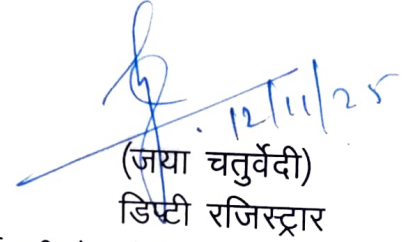 12/11/25
(जया चतुर्वेदी)
डिप्टी रजिस्ट्रार